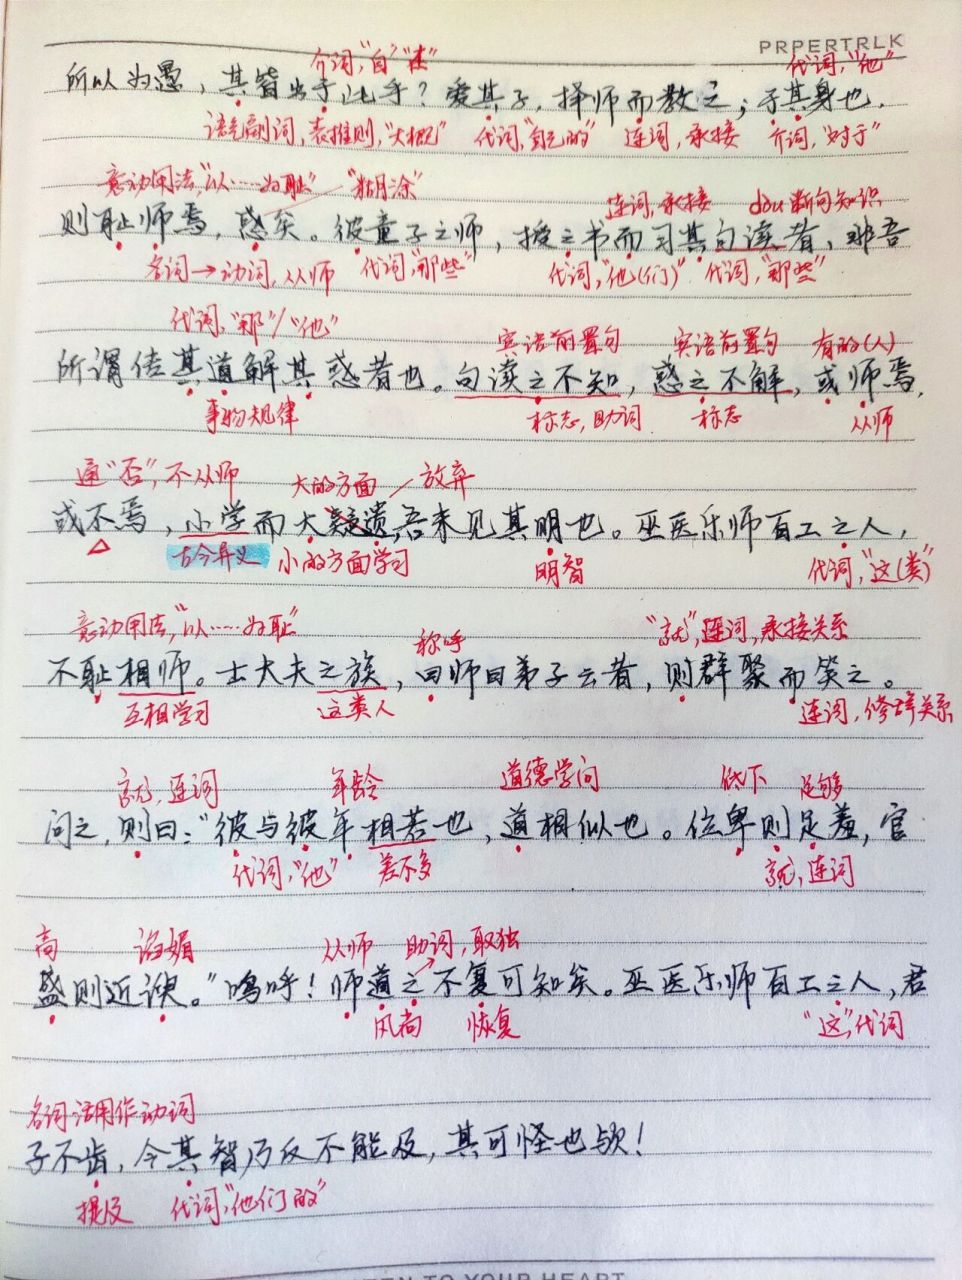 PRPERTRLK
介词,"自""在" 代词,"他"
所以为愚,其皆出于此乎?爱其子,择师而教之;于其身也,
语气副词,表推测,"大概" 代词,"自己的" 连词,承接 介词,"对于"
意动用法,"以……为耻" "糊涂" 连词,承接 dòu 断句知识
则耻师焉,惑矣。彼童子之师,授之书而习其句读者,非吾
名词→动词,从师 代词,"那些" 代词,"他(们)" 代词,"那些"
代词,"那"/"他" 宾语前置句 宾语前置句 有的(人)
所谓传其道解其惑者也。句读之不知,惑之不解,或师焉,
事物规律 标志,助词 标志 从师
通"否",不从师 大的方面 放弃
或不焉,小学而大遗,吾未见其明也。巫医乐师百工之人,
古今异义 小的方面学习 明智 代词,"这(类)"
意动用法,"以……为耻" 称呼 "就",连词,承接关系
不耻相师。士大夫之族,曰师曰弟子云者,则群聚而笑之。
互相学习 这类人 连词,修饰关系
就,连词 年龄 道德学问 低下 足够
问之,则曰:"彼与彼年相若也,道相似也。位卑则足羞,官
代词,"他" 差不多 就,连词
高 谄媚 从师 助词,取独
盛则近谀。"呜呼!师道之不复可知矣。巫医乐师百工之人,君
风尚 恢复 "这",代词
名词活用作动词
子不齿,今其智乃反不能及,其可怪也欤!
提及 代词,"他们的"
TEN TO YOUR HEART